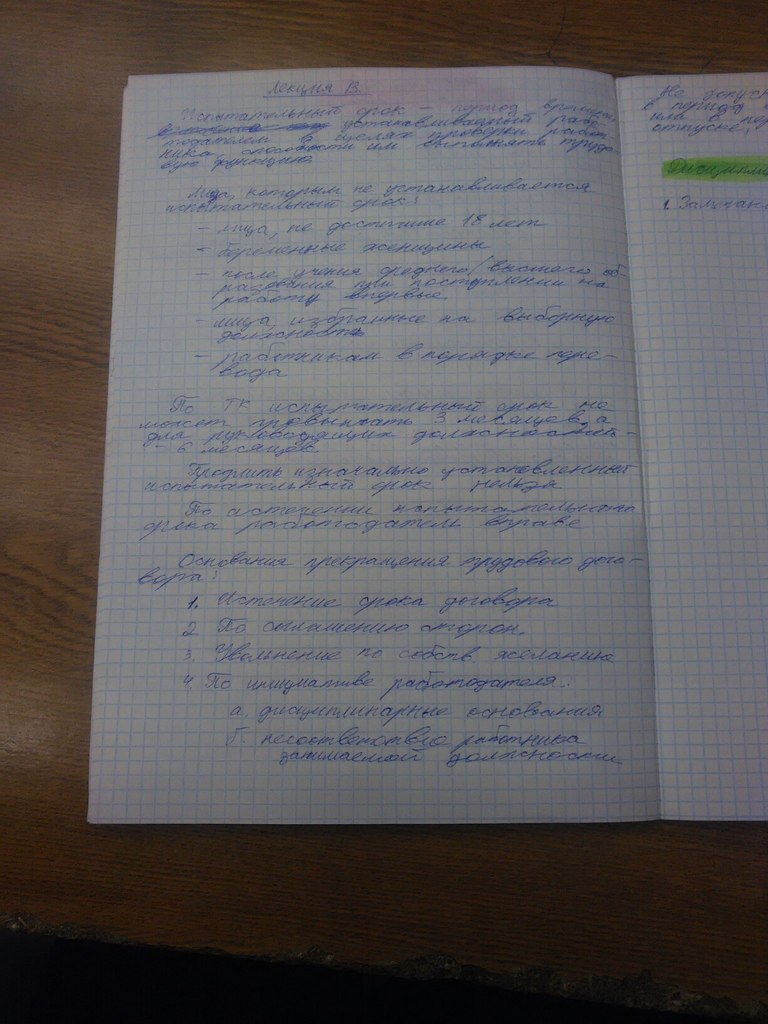 Лекция 13.
Испытательный срок – период времени,
устанавливаемый рабо
тодателем в целях проверки работ
ника способности им выполнять трудо
вую функцию
Лица, которым не устанавливается
испытательный срок:
– лица, не достигшие 18 лет
– беременные женщины
– после учения среднего/высшего об-
разования при поступлении на
работу впервые
– лица, избранные на выборную
должность
– работникам в порядке пере-
вода
По ТК испытательный срок не
может превышать 3 месяцев, а
для руководящих должностей –
– 6 месяцев.
Продлить изначально установленный
испытательный срок нельзя
По истечении испытательного
срока работодатель вправе
Основания прекращения трудового дого-
вора:
1. Истечение срока договора
2 По соглашению сторон.
3. Увольнение по собств. желанию
4. По инициативе работодателя:
а. дисциплинарные основания
б. несоответствие работника
занимаемой должности
Не допуск
в период
или в пер
отпуске.
Дисциплин
1. Замечан